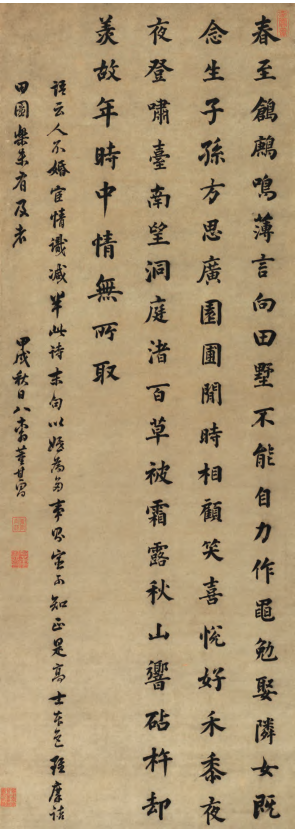 春至鶬鶊鳴薄言向田墅不能自力作黽勉娶隣女既
念生子孫方思廣園圃閒時相顧笑喜悅好禾黍夜
夜登嘯臺南望洞庭渚百草被霜露秋山響砧杵却
羨故年時中情無所取
語云人不婚宦情識減半此詩末句以婚為多事知正是高士本色摩詰
田園樂未有及者 甲戌秋日八十翁董其昌